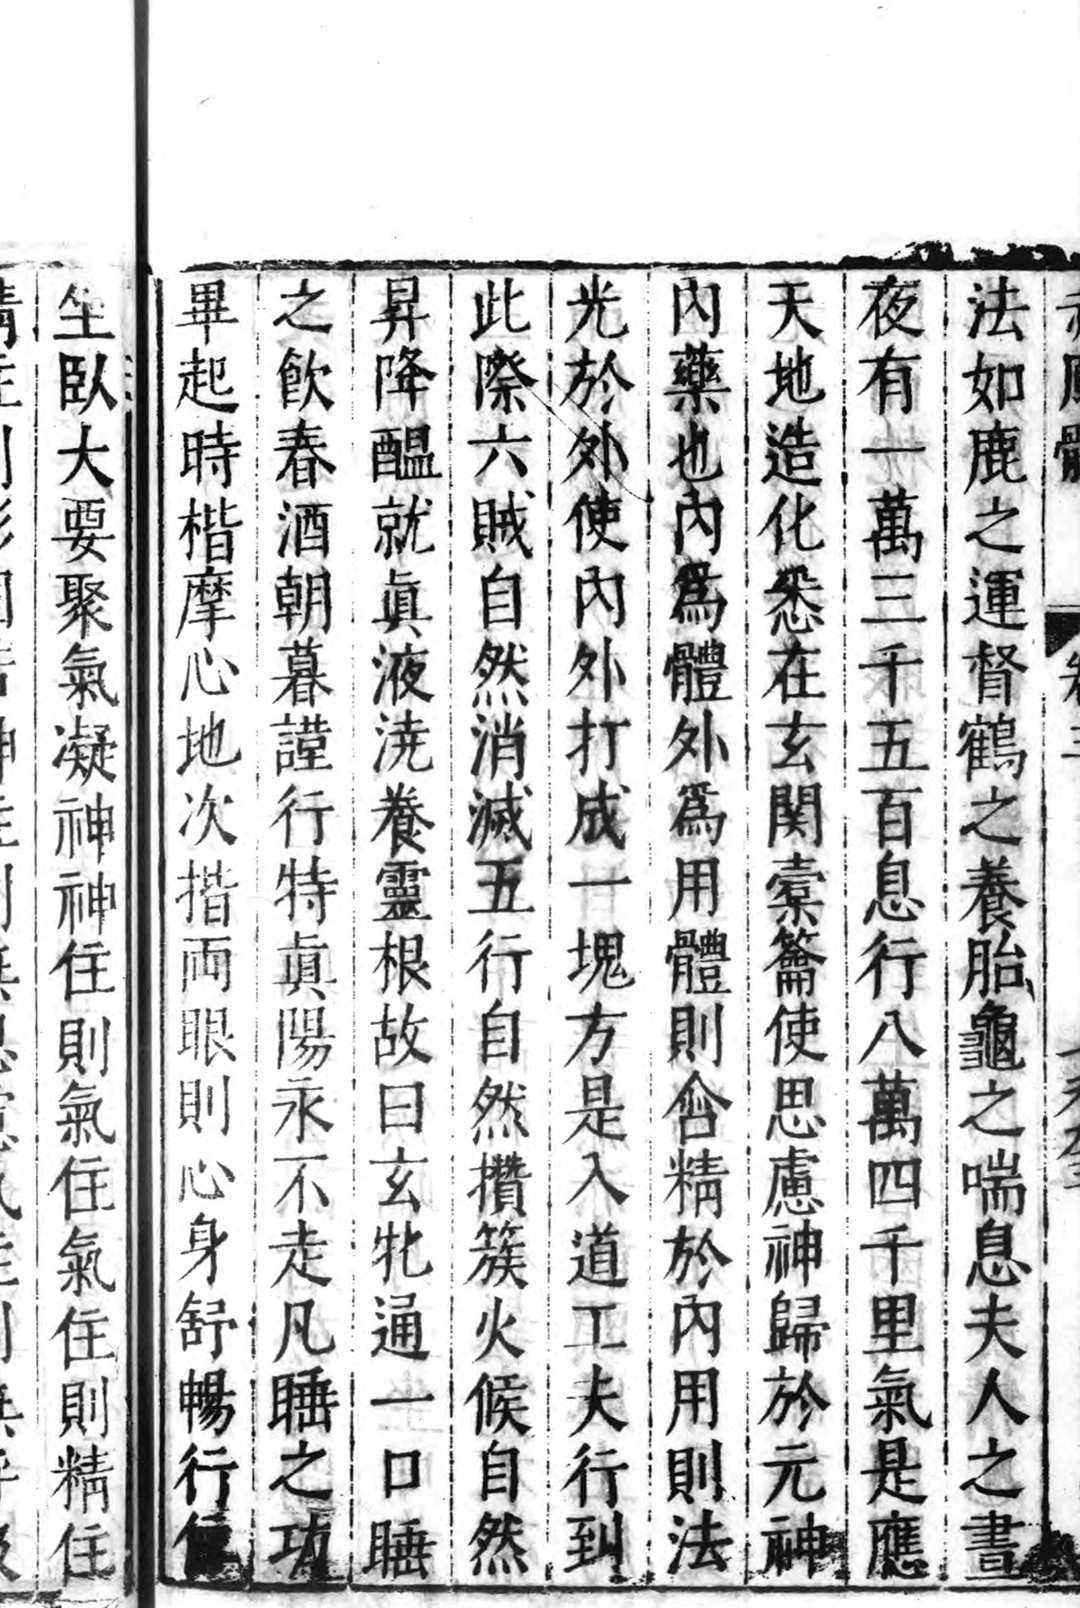 法如鹿之運督鶴之養胎龜之喘息夫人之晝
夜有一萬三千五百息行八萬四千里氣是應
天地造化悉在玄関橐籥使思慮神歸於元神
內藥也內爲體外爲用體則含精於內用則法
光於外使內外打成一塊方是入道工夫行到
此際六賊自然消滅五行自然攢簇火候自然
昇降醞就眞液澆養靈根故曰玄牝通一口睡
之飲春酒朝暮謹行特眞陽永不走凡睡之功
畢起時楷摩心地次揩両眼則心身舒暢行住
坐臥大要聚氣凝神神住則氣住氣住則精住